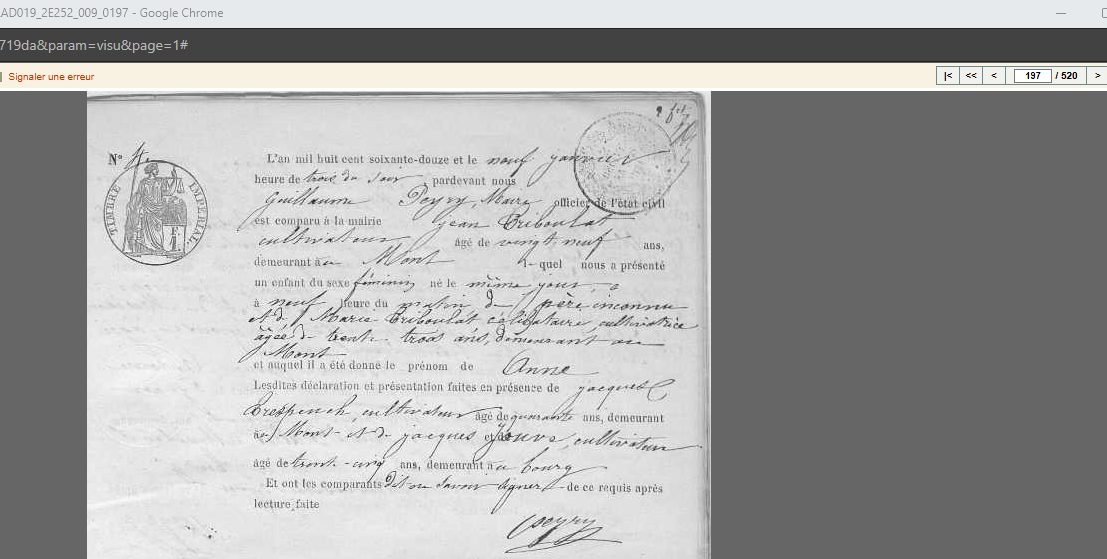 AD019_2E252_009_0197 - Google Chrome
719da&param=visu&page=1#
Signaler une erreur
|< << < 197 / 520 >
N° 4
TIMBRE IMPÉRIAL
F.
1.
L'an mil huit cent soixante-douze et le neuf janvier
heure de trois du soir pardevant nous
Guillaume Peyry, Maire officier de l'état civil
est comparu à la mairie jean Triboulat
cultivateur âgé de vingt neuf ans,
demeurant au Mont lequel nous a présenté
un enfant du sexe féminin né le même jour,
à neuf heure du matin de père inconnu
et de Marie Triboulat célibataire, cultivatrice
âgée de trente trois ans, demeurant au
Mont
et auquel il a été donné le prénom de Anne
Lesdites déclaration et présentation faites en présence de jacques
cultivateur âgé de quarante ans, demeurant
au Mont et de jacques cultivateur
âgé de trente-cinq ans, demeurant au bourg
Et ont les comparants dit ne savoir signer de ce requis après
lecture faite
Peyry